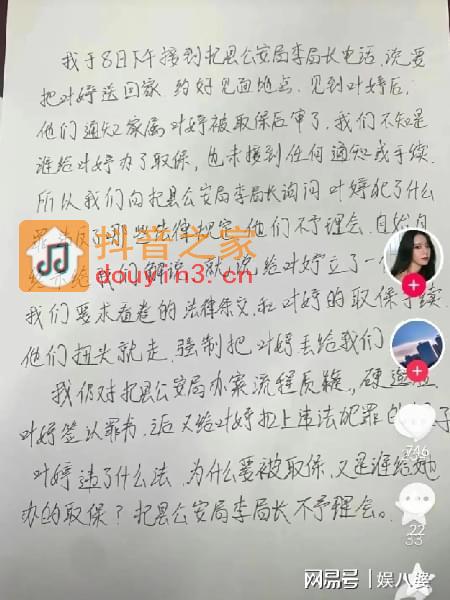 我于8日下午接到杞县公安局李局长电话,说要
把叶婷送回家.约好见面地点.见到叶婷后,
他们通知家属叶婷被取保后审了,我们不知是
谁给叶婷办了取保,也未接到任何通知或手续.
所以我们向杞县公安局李局长询问叶婷犯了什么
罪违反了那些法律规定,他们不予理会,自始自
终未给我们解说,就说给叶婷立了一
我们要求看卷的法律条文,和叶婷的取保手续
他们扭头就走,强制把叶婷丢给我们
我仍对杞县公安局办案流程质疑,硬逼迫
叶婷签认罪书,之后又给叶婷扣上违法犯罪的
叶婷违了什么法,为什么要被取保,又是谁给她
办的取保?杞县公安局李局长不予理会。
抖音之家
douyin3.cn
746
22
33
网易号 | 娱八婆